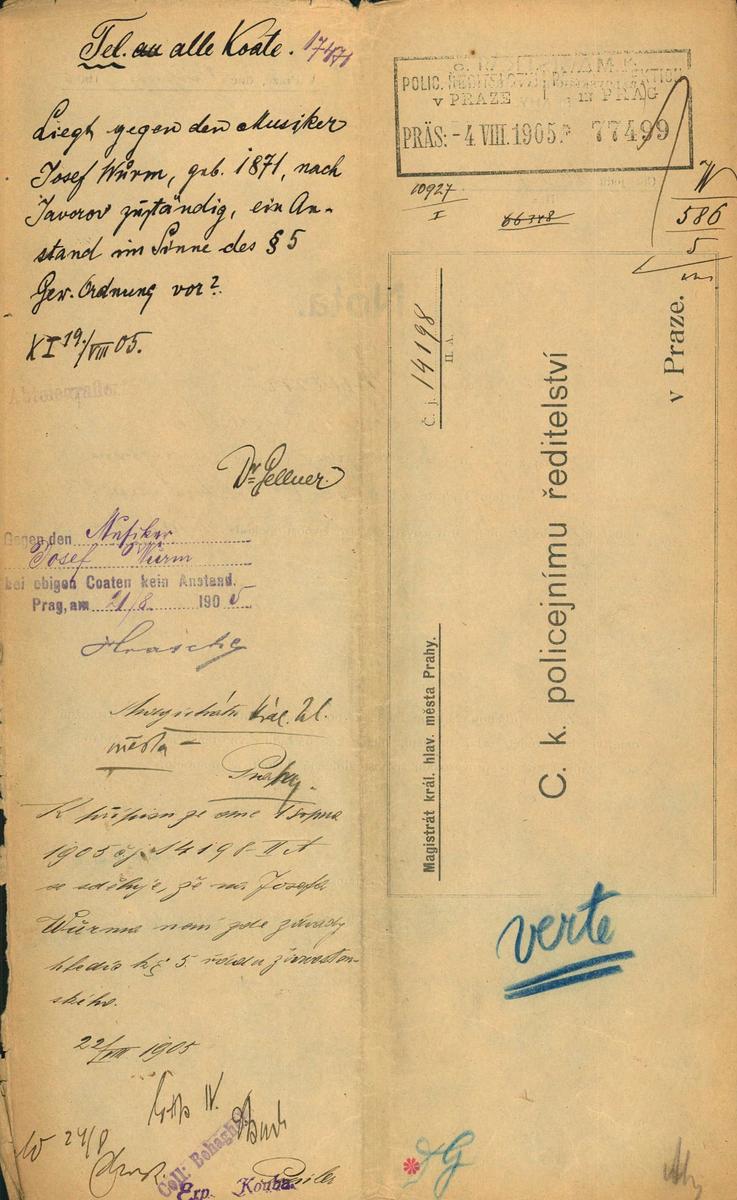 Tel. an alle Koate. 17471
Liegt gegen den Musiker
Josef Wurm, geb. 1871, nach
Javorov zuständig, ein An-
stand im Sinne des § 5
Gew. Ordnung vor?
XI 19./VIII 05.
Dr. Gellner
Gegen den Musiker
Josef Wurm
bei obigen Coaten kein Anstand.
Prag, am 21/8 1905
Magistrátu král. hl.
města
Prahy.
K přípisu ze dne 1 srpna
1905 čj 14198-II A
se sděluje, že na Josefa
Wurma není zde závady
hledíc k § 5. řádu živnosten-
ského.
22/VIII 1905
W 24/8
Coll:
Exp. Kouba
POLIC. ŘEDITELSTVÍ
v PRAZE in PRAG
PRÄS: -4. VIII. 1905. 77499
10927
I
66748
W
586
5
Č. j. 14198
II. A.
Magistrát král. hlav. města Prahy.
C. k. policejnímu ředitelství
v Praze.
verte